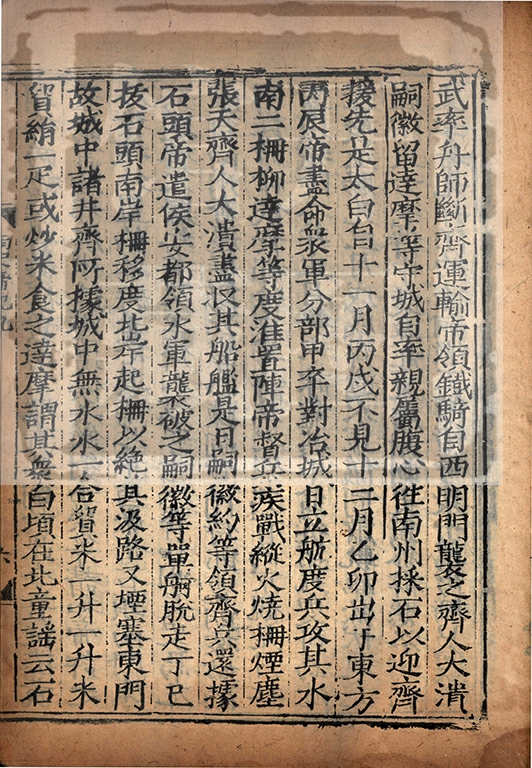 武率舟師斷齊運輸帝領鐵騎自西明門襲之齊人大潰
嗣徽留達摩等守城自率親屬腹心往南州採石以迎齊
援先是太白自十一月丙戌不見十二月乙卯出于東方
丙辰帝盡命衆軍分部甲卒對冶城日立航度兵攻其水
南二柵柳達摩等度淮置陣帝督兵疾戰縱火燒柵煙塵
張天齊人大潰盡収其船艦是日嗣徽約等領齊兵還據
石頭帝遣侯安都領水軍襲破之嗣徽等單舸脫走丁巳
拔石頭南岸柵移度北岸起柵以絕其汲路又堙塞東門
故城中諸井齊所據城中無水水一合貿米一升一升米
貿絹一疋或炒米食之達摩謂其衆曰頃在北童謡云石